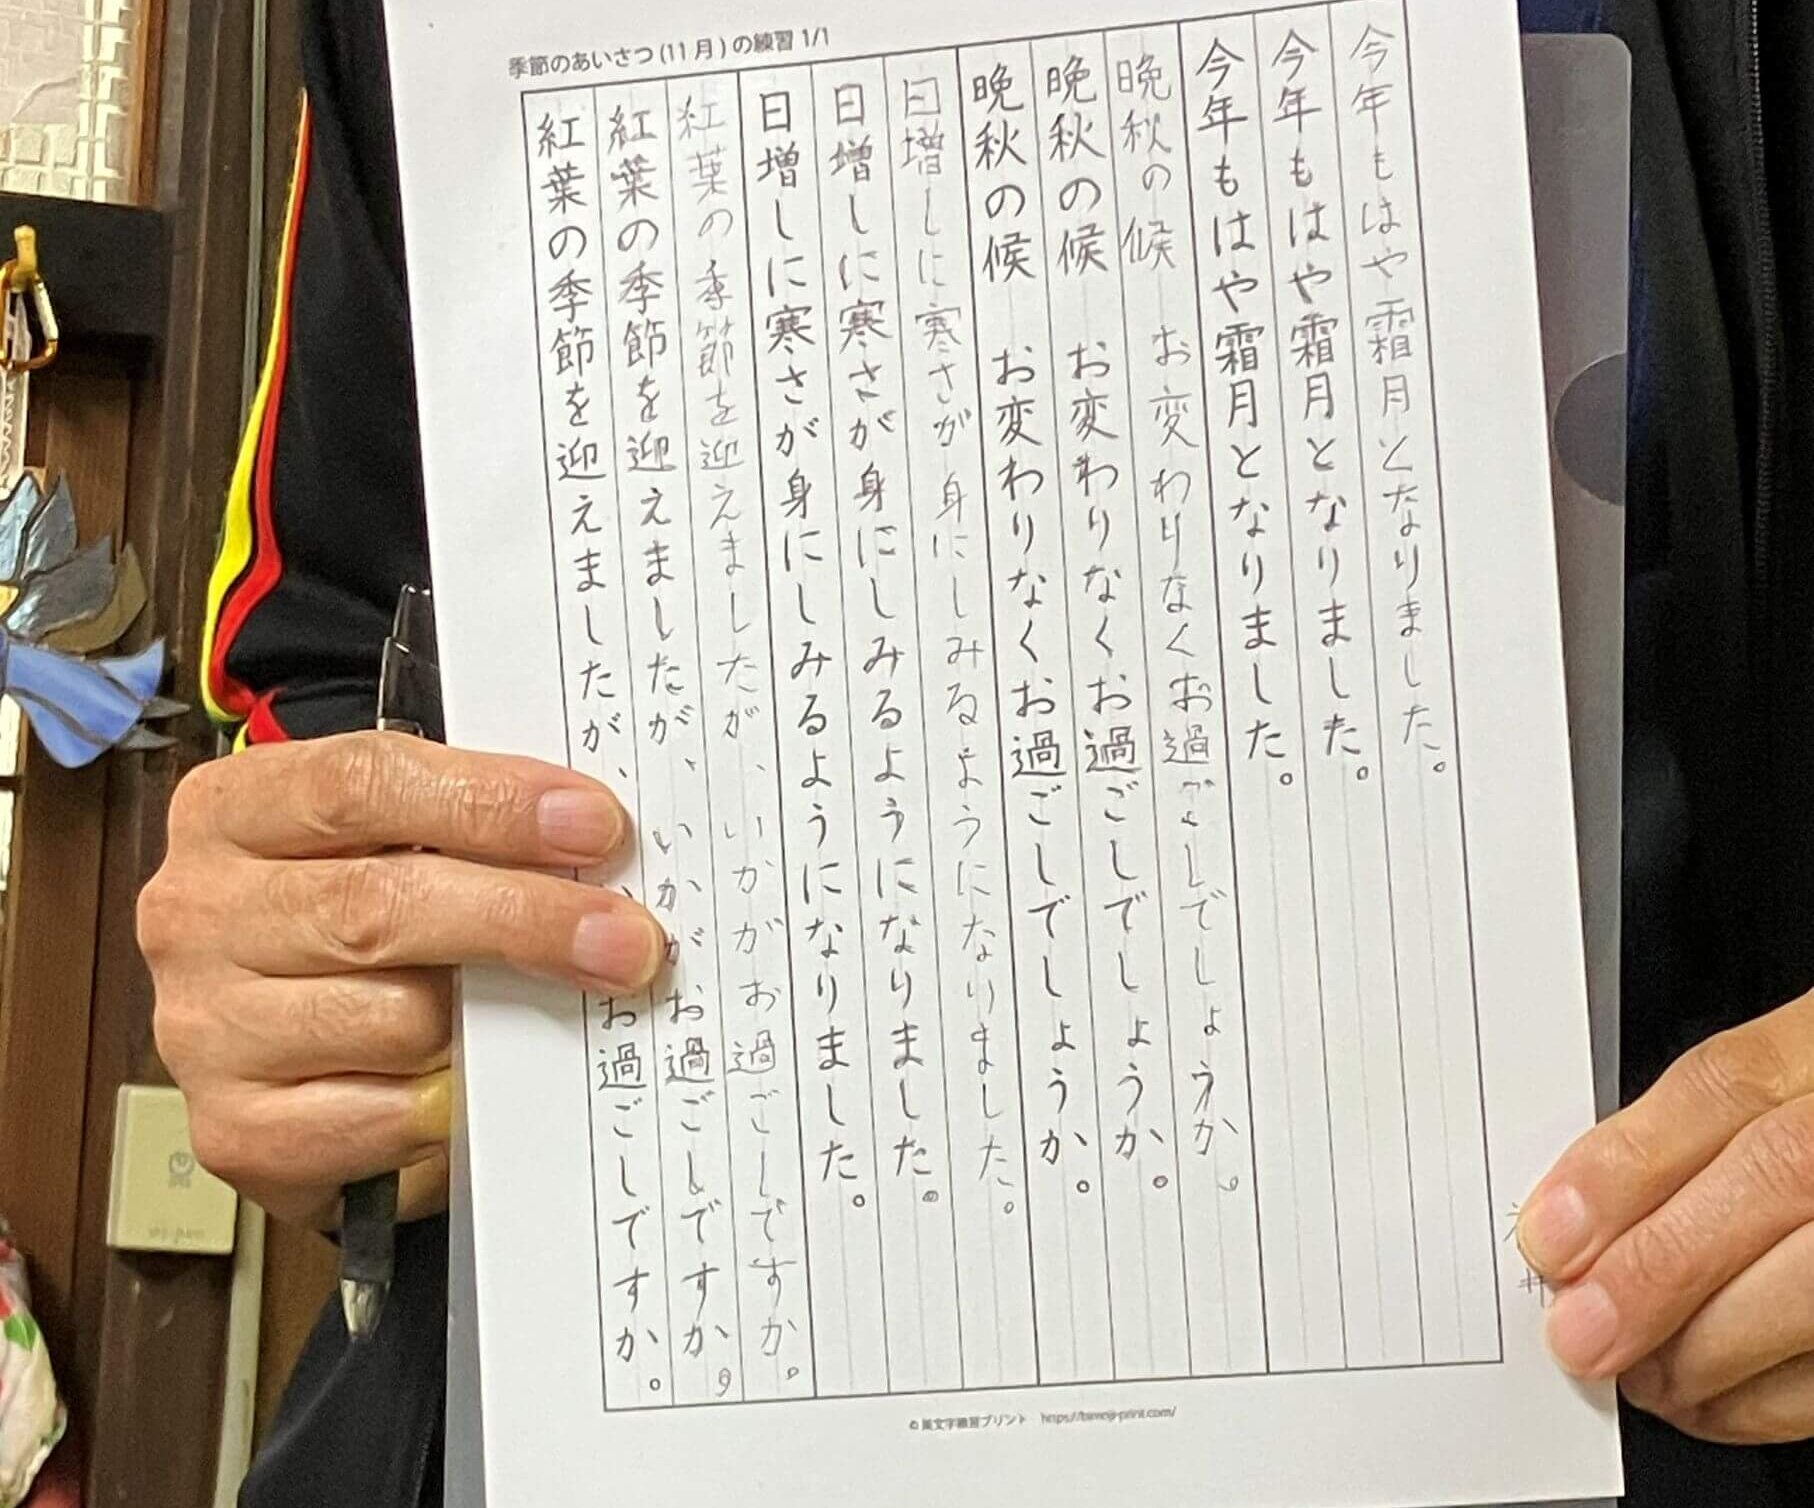 季節のあいさつ(11月)の練習 1/1
今年もはや霜月となりました。
今年もはや霜月となりました。
今年もはや霜月となりました。
晩秋の候　お変わりなくお過ごしでしょうか。
晩秋の候　お変わりなくお過ごしでしょうか。
晩秋の候　お変わりなくお過ごしでしょうか。
日増しに寒さが身にしみるようになりました。
日増しに寒さが身にしみるようになりました。
日増しに寒さが身にしみるようになりました。
紅葉の季節を迎えましたが、いかがお過ごしですか。
紅葉の季節を迎えましたが、いかがお過ごしですか。
紅葉の季節を迎えましたが、お過ごしですか。
井
© 美文字練習プリント https://bimoji-print.com/